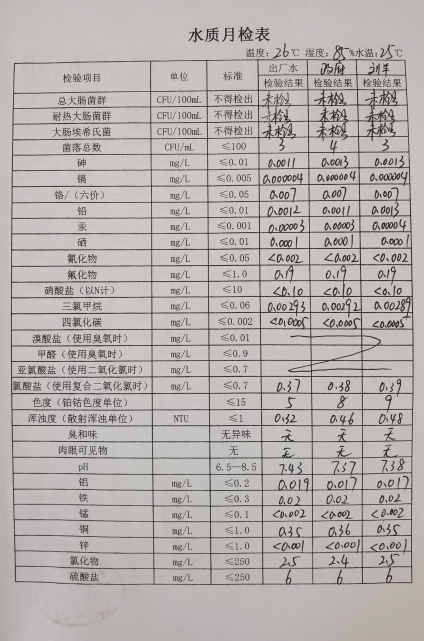 水质月检表
温度：26℃ 湿度：85% 水温：25℃
检验项目 单位 标准 出厂水 检验结果 政府 检验结果 刘羊 检验结果
总大肠菌群 CFU/100mL 不得检出 未检出 未检出 未检出
耐热大肠菌群 CFU/100mL 不得检出 未检出 未检出 未检出
大肠埃希氏菌 CFU/100mL 不得检出 未检出 未检出 未检出
菌落总数 CFU/mL ≤100 3 4 3
砷 mg/L ≤0.01 0.0011 0.0013 0.0013
镉 mg/L ≤0.005 0.000004 0.000004 0.000004
铬/（六价） mg/L ≤0.05 0.007 0.007 0.007
铅 mg/L ≤0.01 0.0012 0.0011 0.0013
汞 mg/L ≤0.001 0.00003 0.00003 0.00004
硒 mg/L ≤0.01 0.0001 0.0001 0.0001
氰化物 mg/L ≤0.05 <0.002 <0.002 <0.002
氟化物 mg/L ≤1.0 0.19 0.19 0.19
硝酸盐（以N计） mg/L ≤10 <0.10 <0.10 <0.10
三氯甲烷 mg/L ≤0.06 0.00293 0.00292 0.00289
四氯化碳 mg/L ≤0.002 <0.0005 <0.0005 <0.0005
溴酸盐（使用臭氧时） mg/L ≤0.01
甲醛（使用臭氧时） mg/L ≤0.9
亚氯酸盐（使用二氧化氯时） mg/L ≤0.7
氯酸盐（使用复合二氧化氯时） mg/L ≤0.7 0.37 0.38 0.39
色度（铂钴色度单位） ≤15 5 8 9
浑浊度（散射浑浊单位） NTU ≤1 0.32 0.46 0.48
臭和味 无异味 无 无 无
肉眼可见物 无 无 无 无
pH 6.5—8.5 7.43 7.37 7.38
铝 mg/L ≤0.2 0.019 0.017 0.017
铁 mg/L ≤0.3 0.02 0.02 0.02
锰 mg/L ≤0.1 <0.002 <0.002 <0.002
铜 mg/L ≤1.0 0.35 0.36 0.35
锌 mg/L ≤1.0 <0.001 <0.001 <0.001
氯化物 mg/L ≤250 2.5 2.4 2.5
硫酸盐 mg/L ≤250 6 6 6